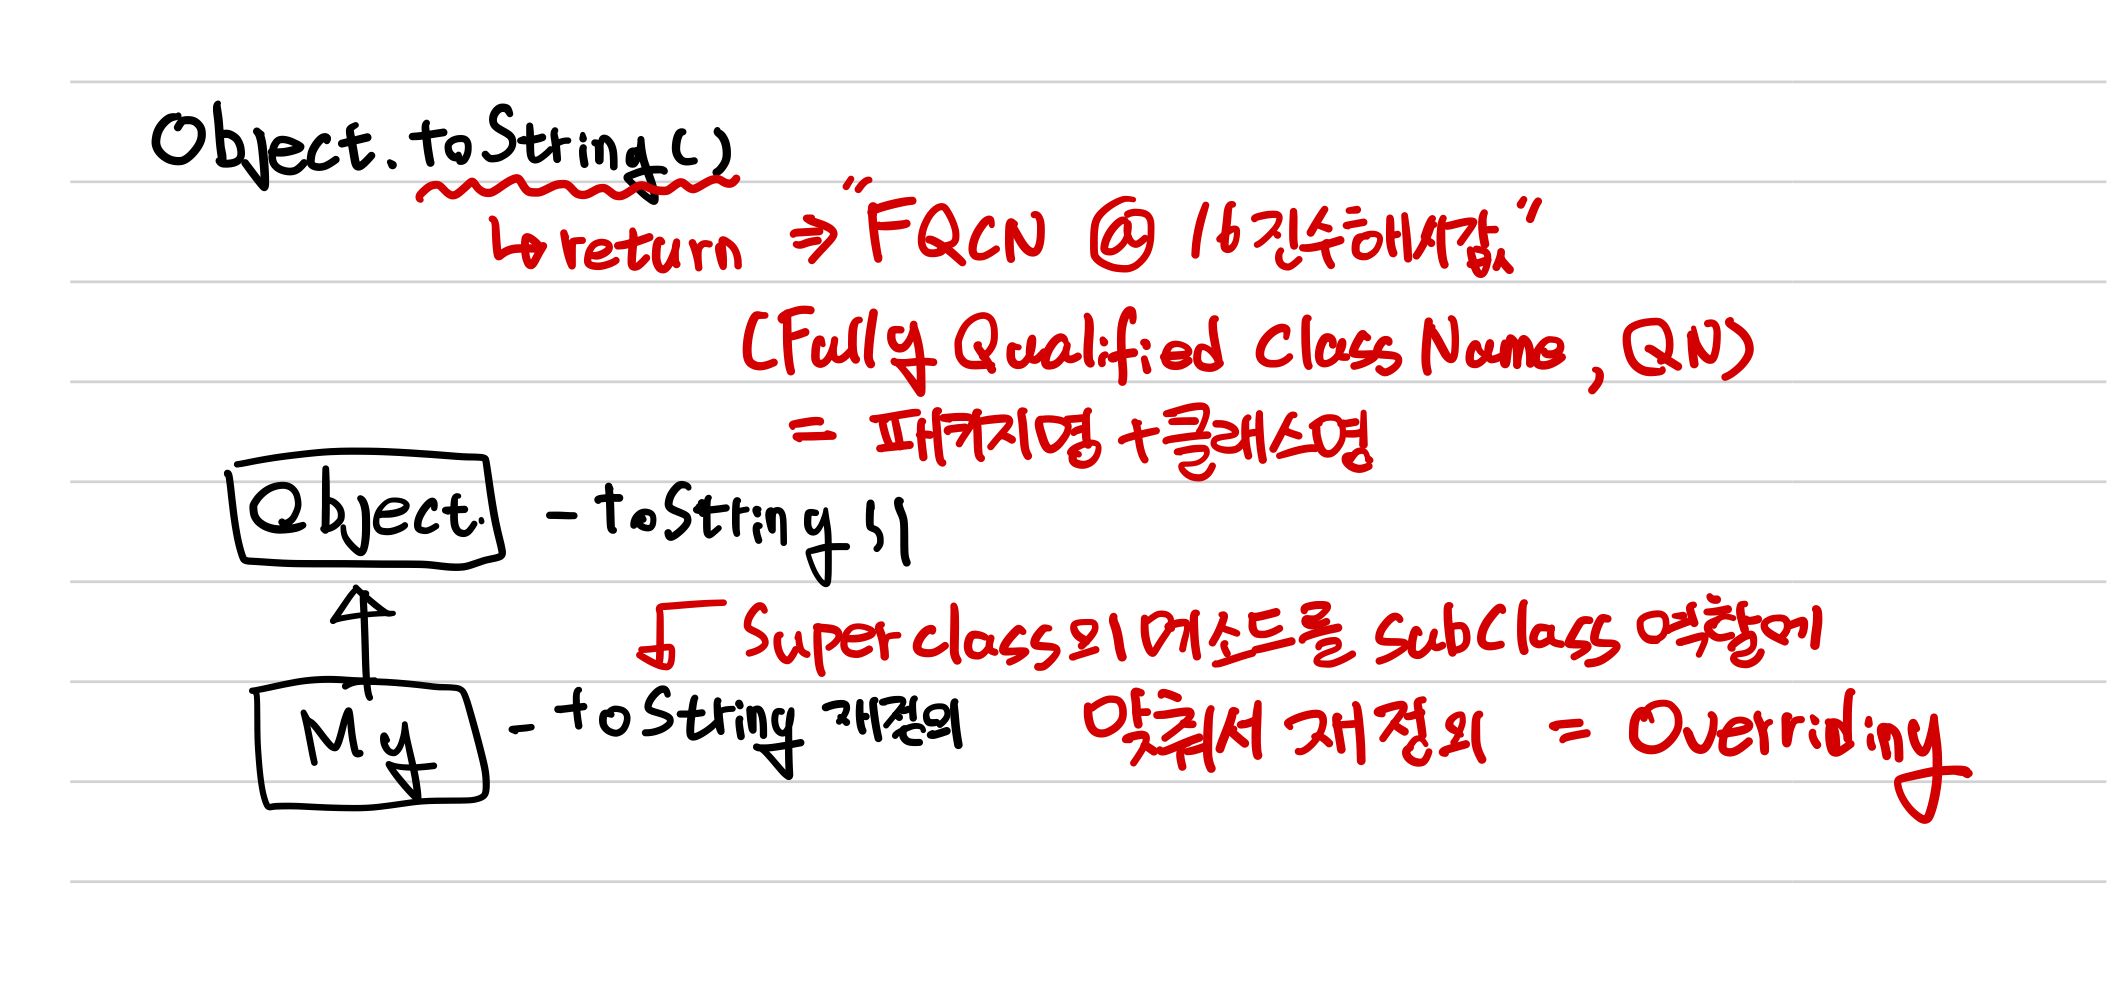 Object.toString()
↳ return ⇒ "FQCN @ 16진수해시값"
(Fully Qualified Class Name, QN)
= 패키지명 + 클래스명
Object - toString()
Super class의 메소드를 subClass 역할에
My - toString 재정의 맞춰서 재정의 = Overriding